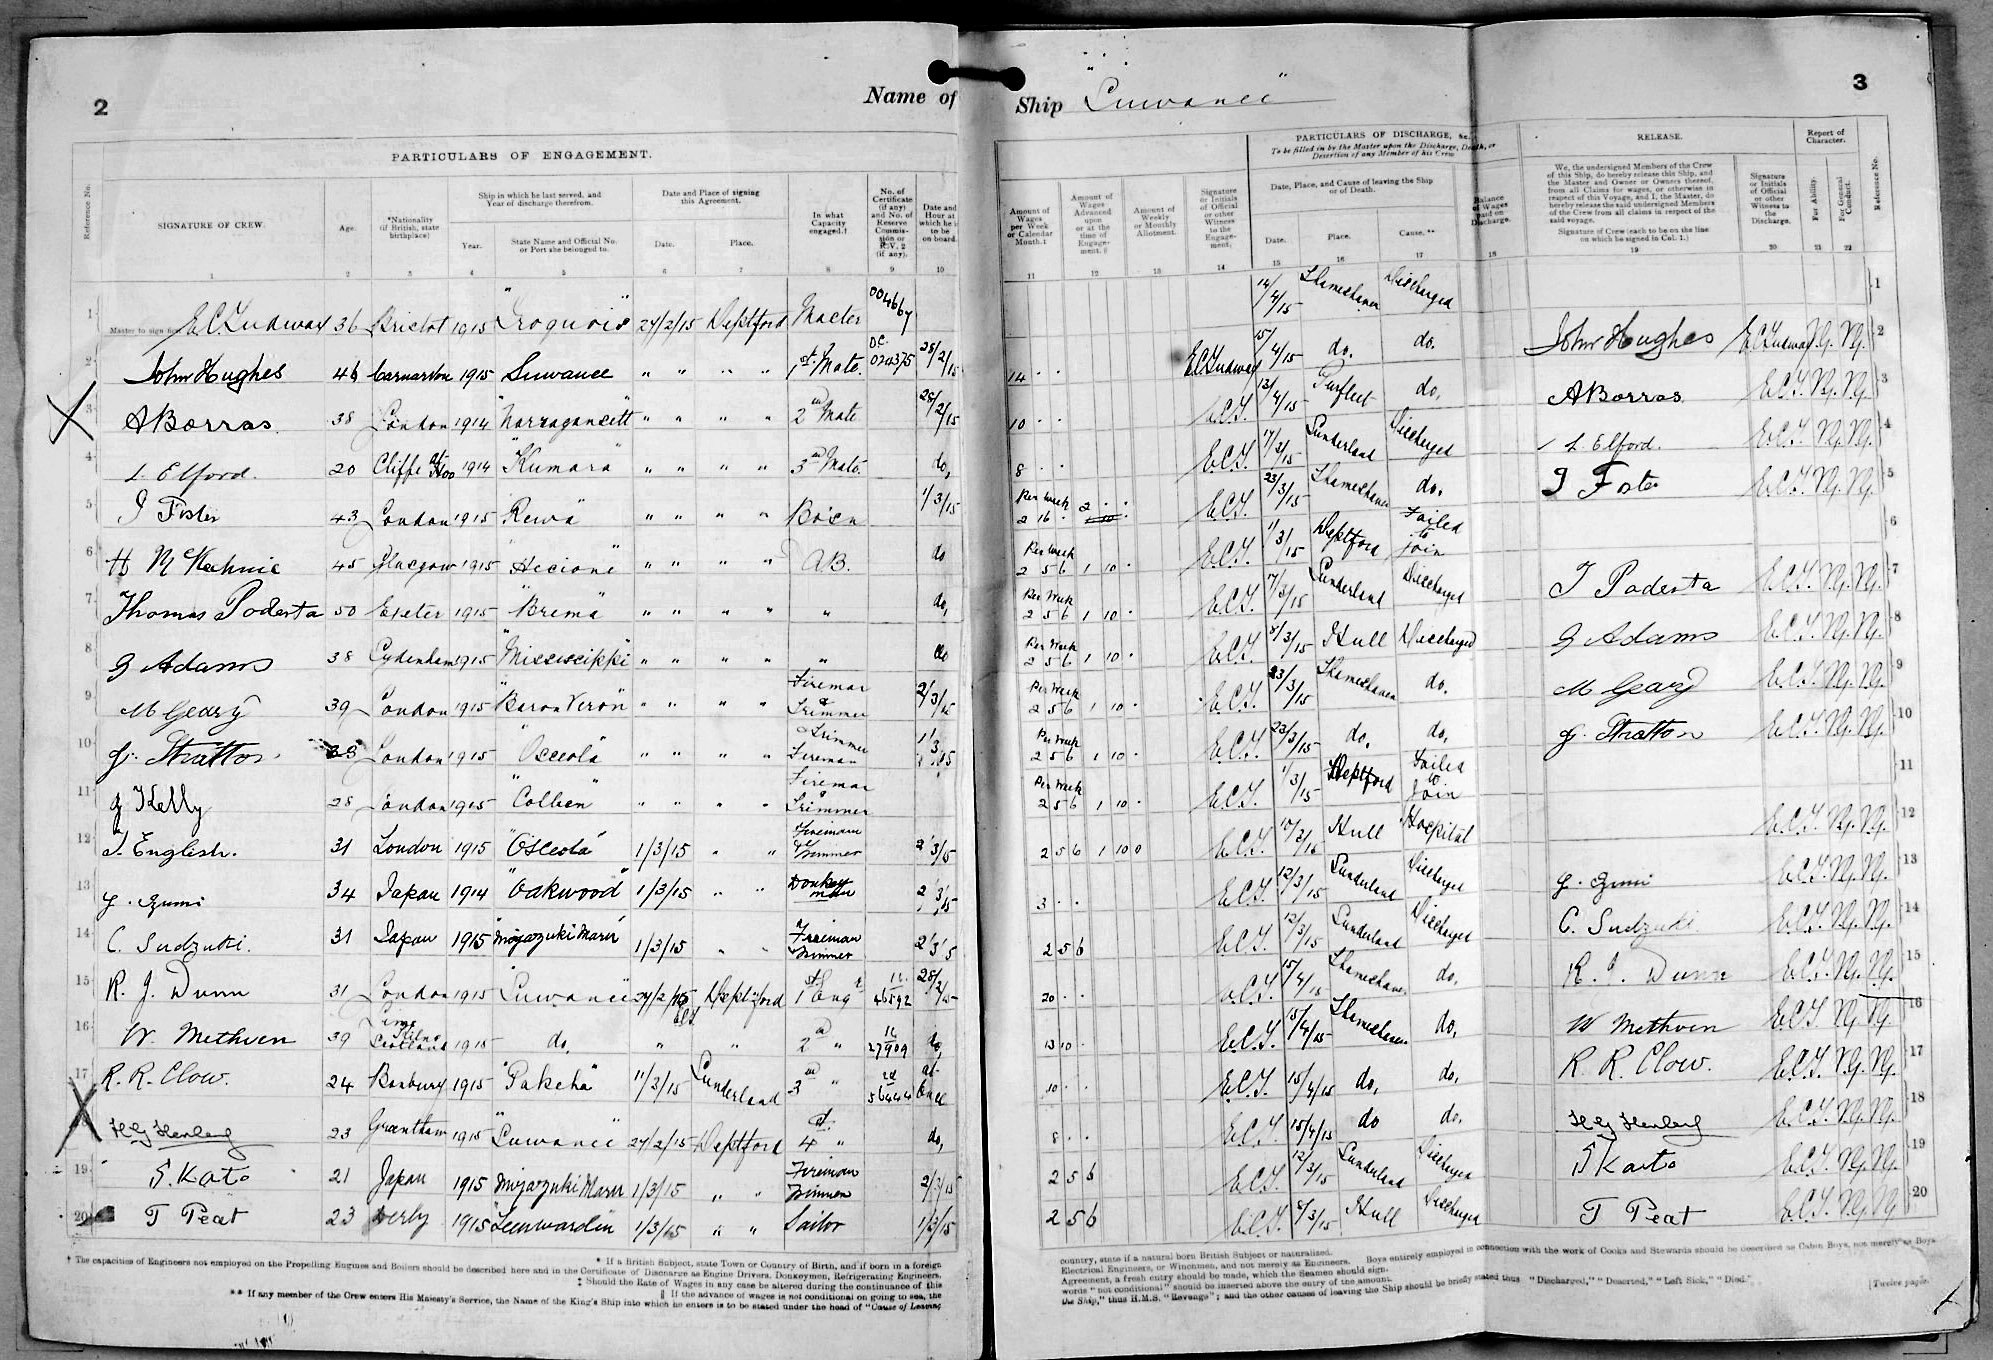 2
Name of Ship "Suwanee"
3
PARTICULARS OF ENGAGEMENT.
PARTICULARS OF DISCHARGE, &c.
To be filled in by the Master upon the Discharge, Death, or Desertion of any Member of his Crew
RELEASE.
Report of Character.
Reference No.
SIGNATURE OF CREW.
Age.
*Nationality (if British, state birthplace)
Ship in which he last served, and Year of discharge therefrom.
Year.
State Name and Official No. or Port she belonged to.
Date and Place of signing this Agreement.
Date.
Place.
In what Capacity engaged.†
No. of Certificate (if any) and No. of Reserve Commission or R.V. 2 (if any).
Date and Hour at which he is to be on board.
Amount of Wages per Week or Calendar Month.‡
Amount of Wages Advanced upon or at the time of Engagement.§
Amount of Weekly or Monthly Allotment.
Signature or Initials of Official or other Witness to the Engagement.
Date, Place, and Cause of leaving the Ship or of Death.
Date.
Place.
Cause.**
Balance of Wages paid on Discharge.
We, the undersigned Members of the Crew of this Ship, do hereby release this Ship, and the Master and Owner or Owners thereof, from all Claims for wages, or otherwise in respect of this Voyage, and I, the Master, do hereby release the said undersigned Members of the Crew from all claims in respect of the said voyage.
Signature of Crew (each to be on the line on which he signed in Col. 1.)
Signature or Initials of Official or other Witness to the Discharge.
For Ability.
For General Conduct.
Reference No.
1 2 3 4 5 6 7 8 9 10 11 12 13 14 15 16 17 18 19 20 21 22
1 Master to sign first E C Ludway 36 Bristol 1915 "Iroquois" 27/2/15 Deptford Master 004667 14/4/15 Thameshaven Discharged 1
2 John Hughes 46 Carnarvon 1915 Suwanee " " " " 1st Mate O.C. 024375 28/2/15 14 . . E C Ludway 15/4/15 do. do. John Hughes E C Ludway V.G. V.G. 2
3 A Borras 38 London 1914 "Narragansett" " " " " 2nd Mate 28/2/15 10 . . E.C.L. 13/4/15 Purfleet do, A Borras E.C.L. V.G. V.G. 3
4 L. Elford. 20 Cliffe at Hoo 1914 "Kumara" " " " " 3rd Mate. do, 8 . . E.C.L. 17/3/15 Sunderland Discharged L. Elford. E.C.L. V.G. V.G. 4
5 J Foster 43 London 1915 "Rewa" " " " " Bosn 1/3/15 Per Week 2 16 . 2 . . E.C.L. 23/3/15 Thameshaven do. J Foster E.C.L. V.G. V.G. 5
6 45 Glasgow 1915 " " " " A.B. do Per Week 2 5 6 1 10 . E.C.L. 1/3/15 Deptford, Failed to join 6
7 Thomas Podesta 50 Exeter 1915 "Brema" " " " " " do, Per Week 2 5 6 1 10 . E.C.L. 7/3/15 Sunderland Discharged T Podesta E.C.L. V.G. V.G. 7
8 G Adams 38 Sydenham 1915 "Mississippi" " " " " " do Per Week 2 5 6 1 10 . E.C.L. 8/3/15 Hull Discharged G Adams E.C.L. V.G. V.G. 8
9 M Geary 39 London 1915 "Baron Veron" " " " " Fireman & Trimmer 2/3/15 Per Week 2 5 6 1 10 . E.C.L. 23/3/15 Thameshaven do. M Geary E.C.L. V.G. V.G. 9
10 G. Stratton 38 London 1915 "Osceola" " " " " Trimmer Fireman 1/3/15 Per Week 2 5 6 1 10 . E.C.L. 23/3/15 do, do, G. Stratton E.C.L. V.G. V.G. 10
11 G Kelly 28 London 1915 "Collien" " " " " Fireman & Trimmer Per Week 2 5 6 1 10 . E.C.L. 1/3/15 Deptford Failed to Join 11
12 T. English. 31 London 1915 "Osceola" 1/3/15 " " Fireman & Trimmer 2/3/15 2 5 6 1 10 0 E.C.L. Hull Hospital E.C.L. V.G. V.G. 12
13 G. Izumi 34 Japan 1914 "Oakwood" 1/3/15 " " Donkeyman 2/3/15 3 . . E.C.L. 12/3/15 Sunderland Discharged G. Izumi E.C.L. V.G. V.G. 13
14 C. Sudzuki. 31 Japan 1915 "Miyazuki Maru" 1/3/15 " " Fireman & Trimmer 2/3/15 2 5 6 E.C.L. 12/3/15 Sunderland Discharged C. Sudzuki E.C.L. V.G. V.G. 14
15 R. J. Dunn 31 London 1915 "Suwanee" 27/2/15 E.C.L. Deptford 1st Engr 1c 46592 28/2/15 20 . . E.C.L. 15/4/15 Thameshaven do, R. J. Dunn E.C.L. V.G. V.G. 15
16 W. Methven 39 Lime Kilns Scotland 1915 do. " " 2nd " 27909 do, 13 10 . E.C.L. 15/4/15 Thameshaven do, W Methven E.C.L. V.G. V.G. 16
17 R. R. Clow. 24 Banbury 1915 "Pakeha" 11/3/15 Sunderland 3rd " 56444 at once 10 . . E.C.L. 15/4/15 do, do, R. R. Clow. E.C.L. V.G. V.G. 17
18 H G Henlery 23 Grantham 1915 "Suwanee" 27/2/15 Deptford 4 " do, 8 . . E.C.L. 15/4/15 do do, H G Henlery E.C.L. V.G. V.G. 18
19 S. Kato 21 Japan 1915 Miyazuki Maru 1/3/15 " " Fireman Trimmer 2/3/15 2 5 6 E.C.L. 12/3/15 Sunderland Discharged S Kato E.C.L. V.G. V.G. 19
20 T Peat 23 Derby 1915 "Leenwarden 1/3/15 " " Sailor 1/3/15 2 5 6 E.C.L. 8/3/15 Hull Discharged T Peat E.C.L. V.G. V.G. 20
† The capacities of Engineers not employed on the Propelling Engines and Boilers should be described here and in the Certificate of Discharge as Engine Drivers, Donkeymen, Refrigerating Engineers,
* If a British Subject, state Town or Country of Birth, and if born in a foreign
‡ Should the Rate of Wages in any case be altered during the continuance of this
‖ If the advance of wages is not conditional on going to sea, the
** If any member of the Crew enters His Majesty's Service, the Name of the King's Ship into which he enters is to be stated under the head of "Cause of Leaving
country, state if a natural born British Subject or naturalized.
Electrical Engineers, or Winchmen, and not merely as Engineers. Boys entirely employed in connection with the work of Cooks and Stewards should be described as Cabin Boys, not merely as Boys.
Agreement, a fresh entry should be made, which the Seamen should sign.
words "not conditional" should be inserted above the entry of the amount.
the Ship," thus H.M.S. "Revenge"; and the other causes of leaving the Ship should be briefly stated thus "Discharged," "Deserted," "Left Sick," "Died."
[Twelve pages.